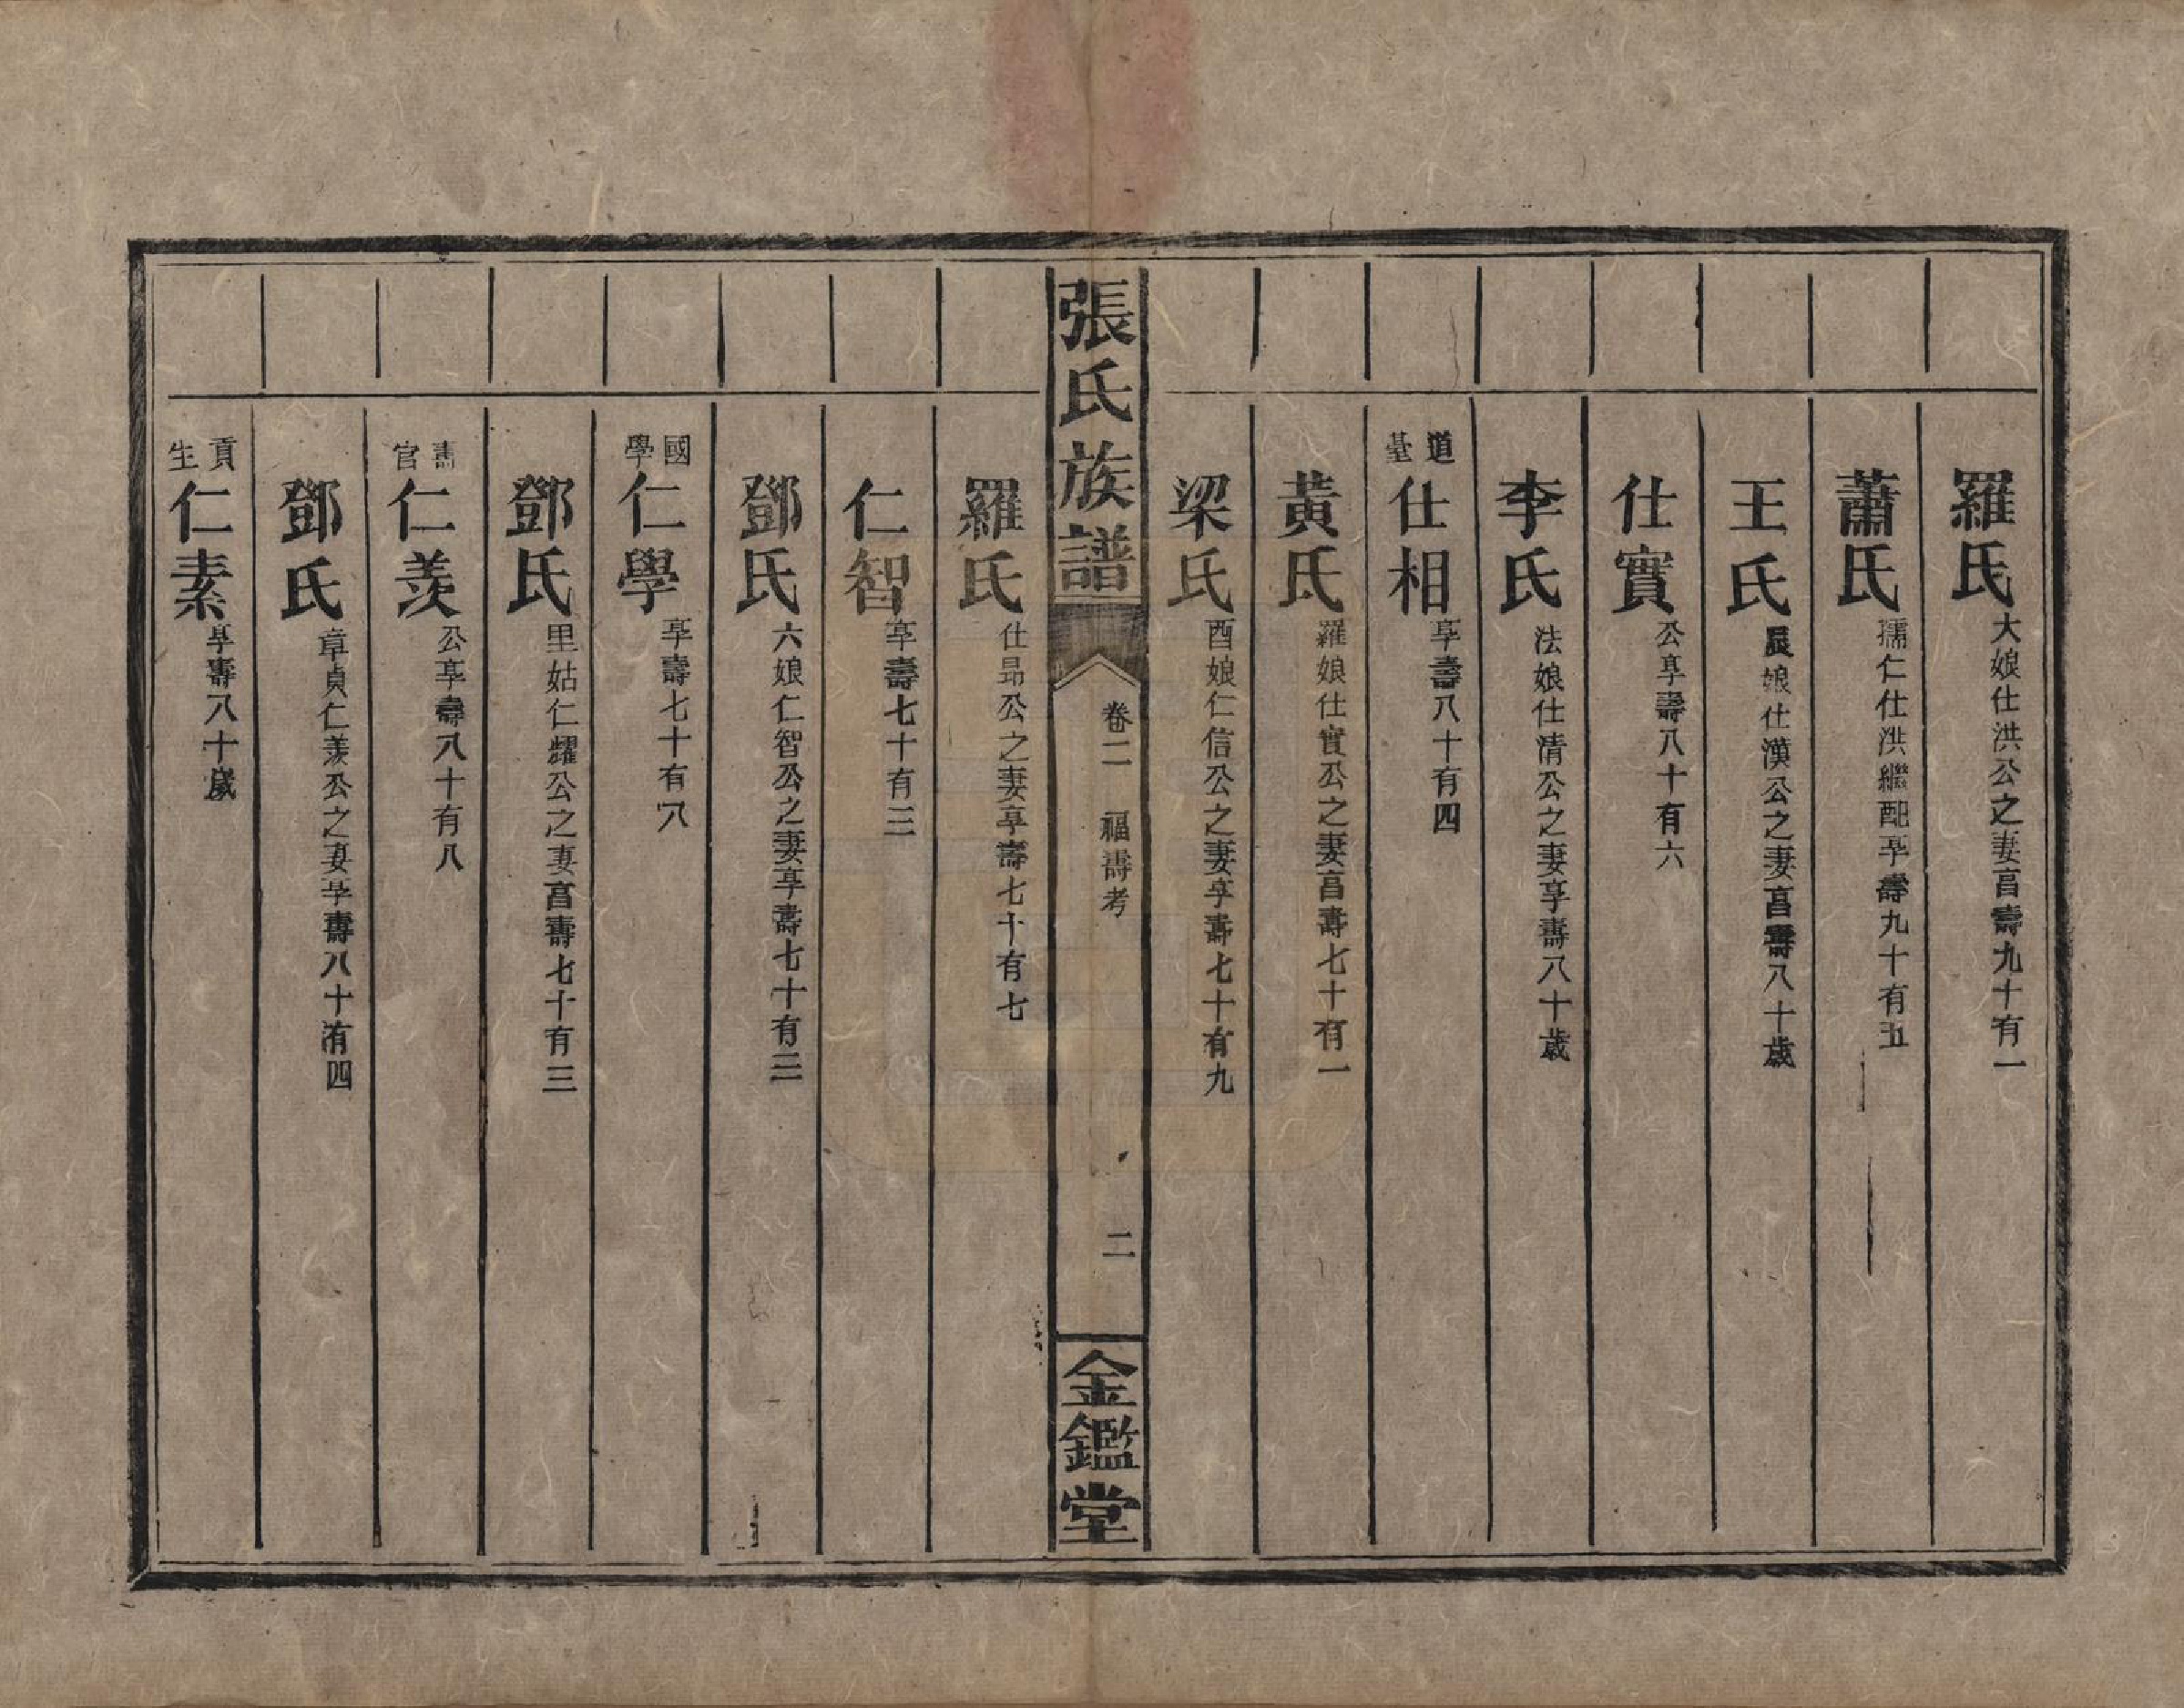 羅氏大娘仕洪公之妻亯壽九十有一
蕭氏孺仁仕洪繼配享壽九十有五
王氏辰娘仕漢公之妻亯壽八十歲
仕實公享壽八十有六
李氏法娘仕清公之妻享壽八十歲
道臺仕相享壽八十有四
黃氏羅娘仕實公之妻亯壽七十有一
梁氏酉娘仁信公之妻享壽七十有九
張氏族譜 卷二 福壽考 二 金鑑堂
羅氏仕昻公之妻享壽七十有七
仁智享壽七十有三
鄧氏六娘仁智公之妻享壽七十有三
國學仁學享壽七十有六
鄧氏里姑仁耀公之妻亯壽七十有三
壽官仁羨公享壽八十有八
鄧氏章貞仁羨公之妻享壽八十有四
貢生仁素享壽八十歲